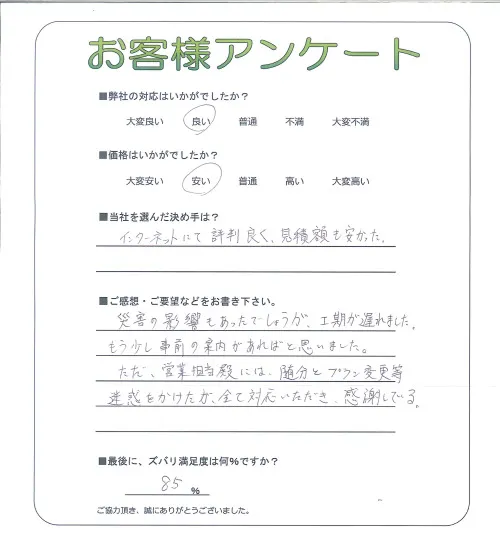 お客様アンケート
■弊社の対応はいかがでしたか？
大変良い 良い 普通 不満 大変不満
■価格はいかがでしたか？
大変安い 安い 普通 高い 大変高い
■当社を選んだ決め手は？
インターネットにて評判良く、見積額も安かった。
■ご感想・ご要望などをお書き下さい。
災害の影響もあったでしょうが、工期が遅れました。
もう少し事前の案内があればと思いました。
ただ、営業担当殿には、随分とプラン変更等
迷惑をかけたが、全て対応いただき、感謝している。
■最後に、ズバリ満足度は何%ですか？
85 %
ご協力頂き、誠にありがとうございました。